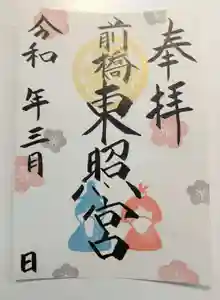 奉拝
前橋東照宮
令和 年三月 日